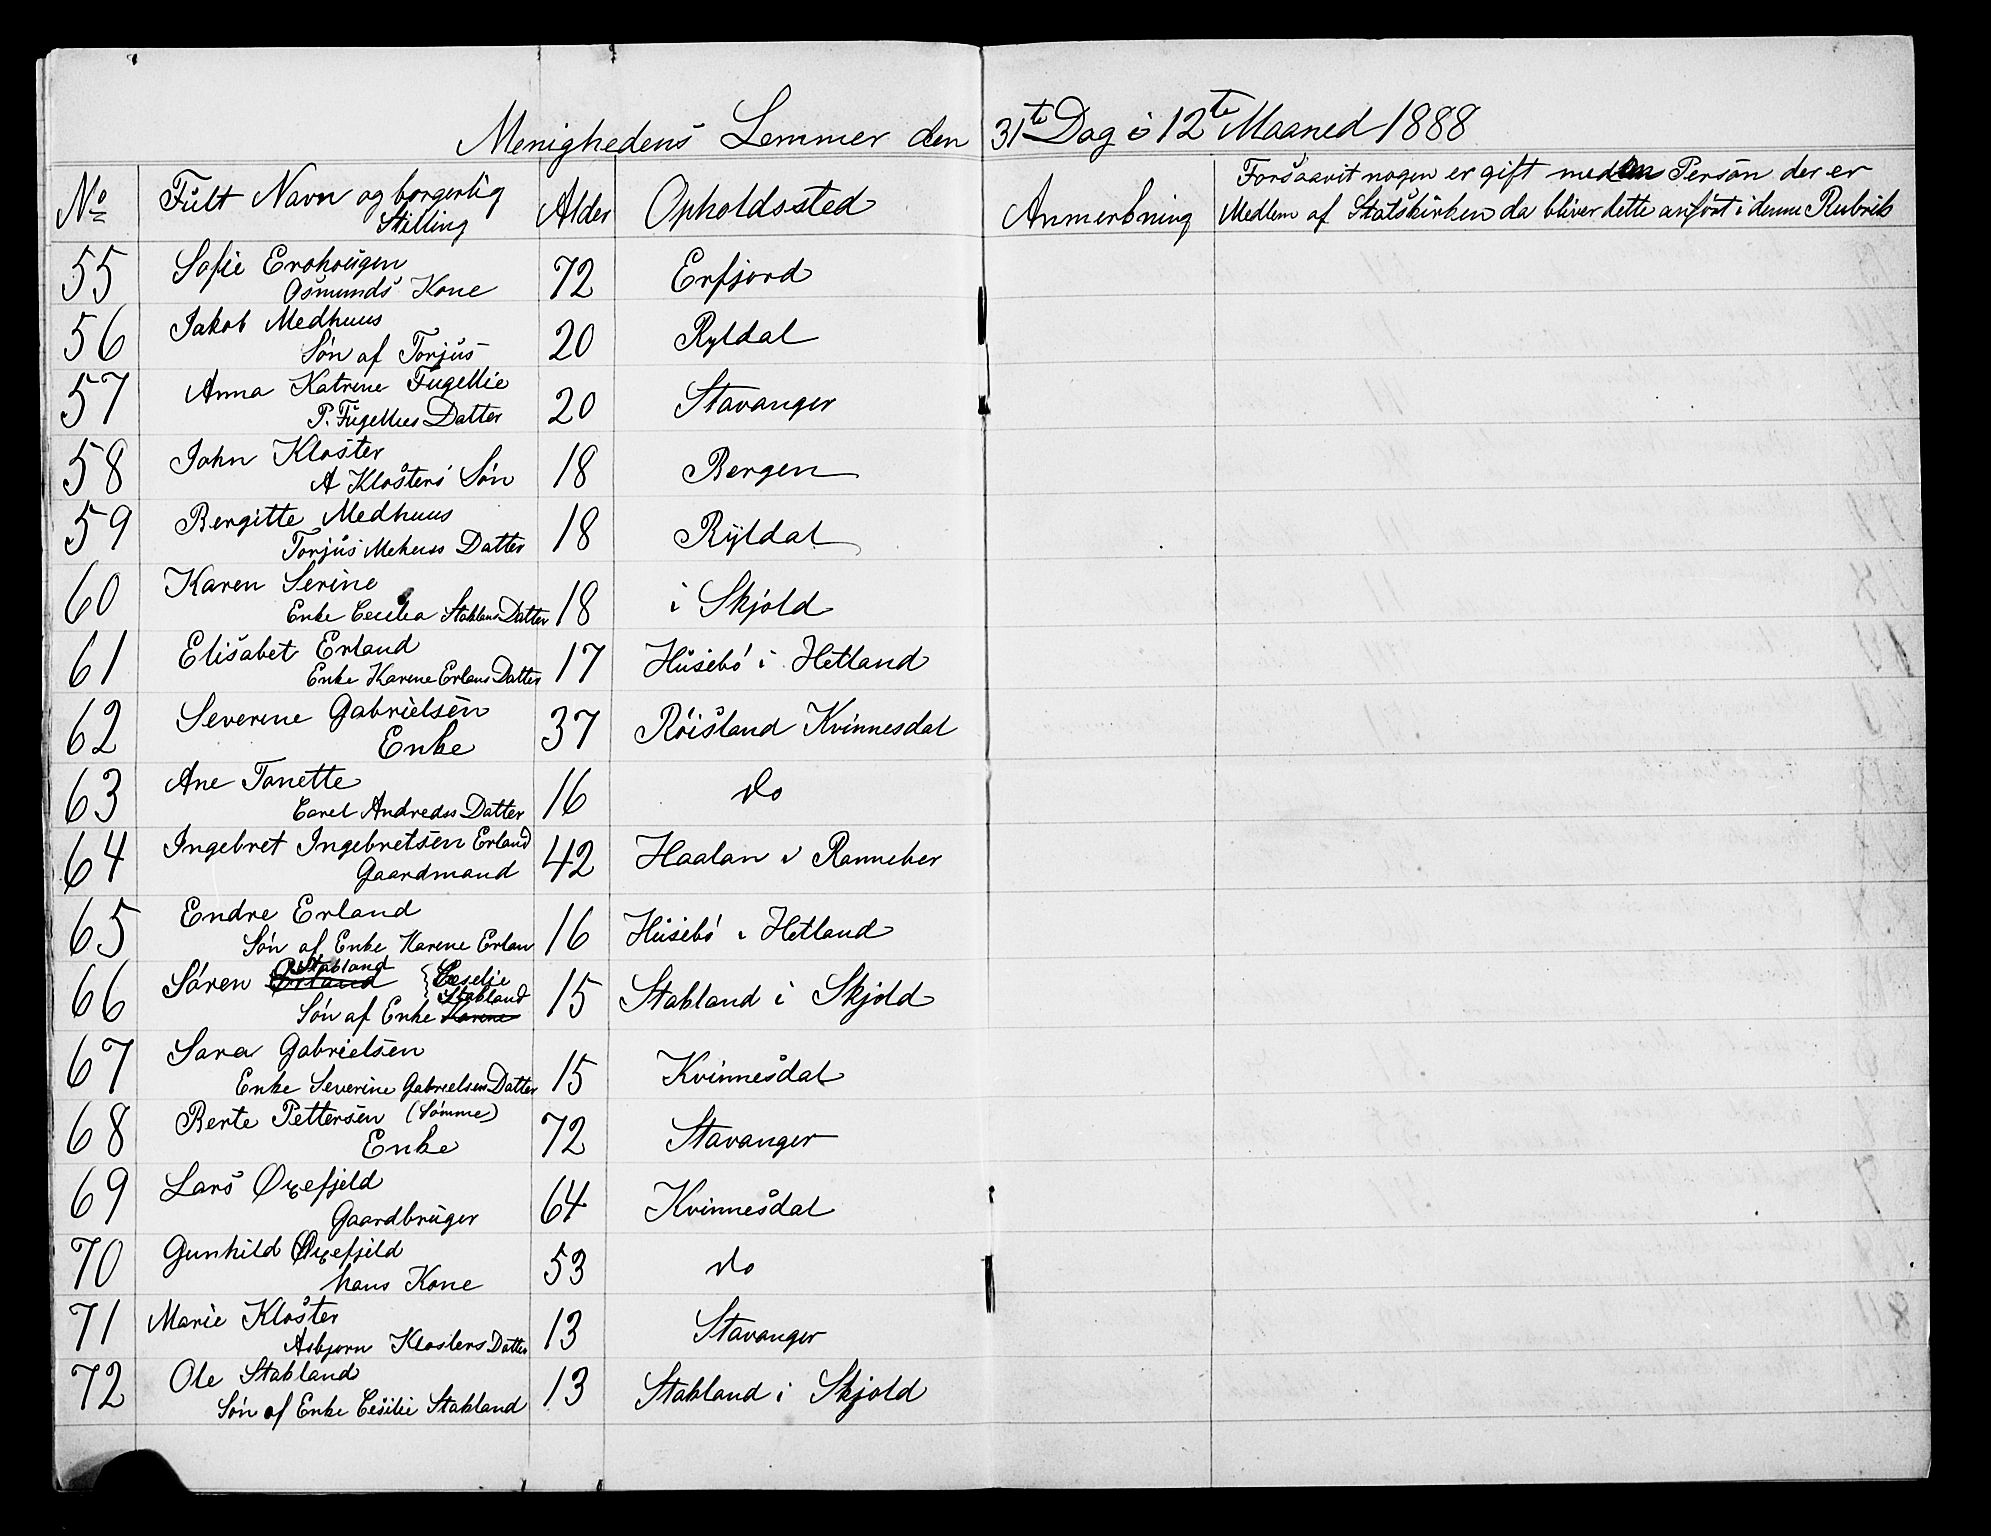 Menighedens Lemmer den 31te Dag i 12te Maaned 1888
No Fult Navn og borgerlig Stilling Alder Opholdssted Anmerkning Forsaavit nogen er gift med en Person der er
Medlem af Statskirken da bliver dette anført i denne Rubrik
55 Sofie Erohougen 72 Erfjord
Osmunds Kone
56 Jakob Medhuus 20 Ryldal
Søn af Torjus
57 Anna Katrine Fugellie 20 Stavanger
P. Fugellies Datter
58 John Kloster 18 Bergen
A Klosters Søn
59 Bergitte Medhuus 18 Ryldal
Torjus Mehuss Datter
60 Karen Serine 18 i Skjold
Enke Cecilia Staklans Datter
61 Elisabet Erland 17 Husebø i Hetland
Enke Karene Erlans Datter
62 Severine Gabrielsen 37 Røisland Kvinnesdal
Enke
63 Ane Tonette 16 do
Carel Andreass Datter
64 Ingebret Ingebretsen Erland 42 Haalan v Ranneber
Gaardmand
65 Endre Erland 16 Husebø i Hetland
Søn af Enke Karene Erlan
66 Søren Erland Stakland { Ceselje 15 Stakland i Skjold
Stakland
Søn af Enke Karene
67 Sara Gabrielsen 15 Kvinnesdal
Enke Severine Gabrielsens Datter
68 Berte Pettersen (Sømme) 72 Stavanger
Enke
69 Lars Øxefjeld 64 Kvinnesdal
Gaardbruger
70 Gunhild Øxefjeld 53 do
hans Kone
71 Marie Kloster 13 Stavanger
Asbjørn Klosters Datter
72 Ole Stakland 13 Stakland i Skjold
Søn af Enke Cesilie Stakland